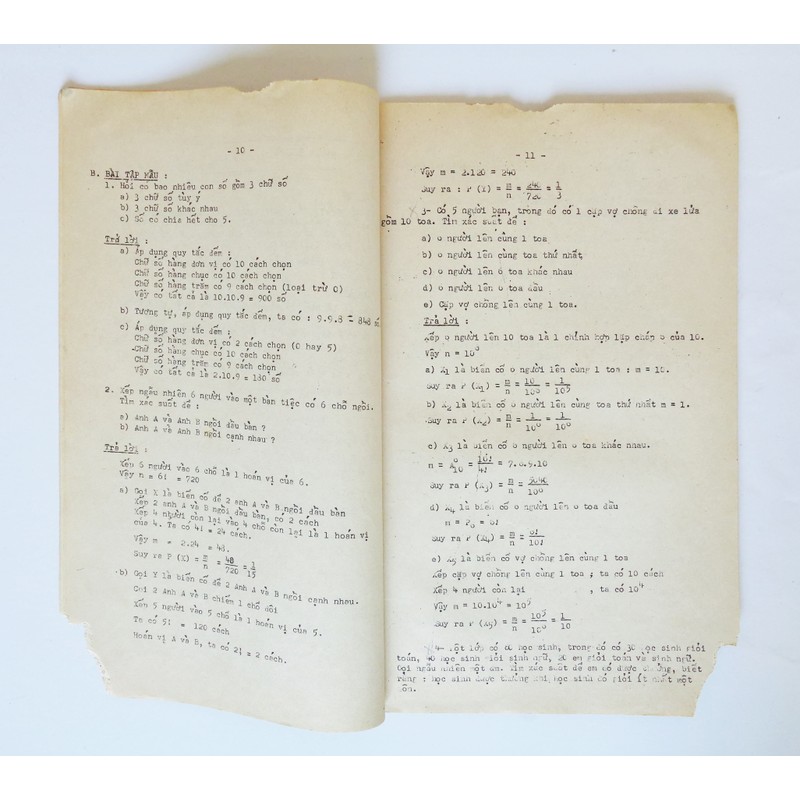 - 10 -
B. BÀI TẬP MẪU :
1. Hỏi có bao nhiêu con số gồm 3 chữ số
a) 3 chữ số tùy ý
b) 3 chữ số khác nhau
c) Số có chia hết cho 5.
Trả lời :
a) Áp dụng quy tắc đếm :
Chữ số hàng đơn vị có 10 cách chọn
Chữ số hàng chục có 10 cách chọn
Chữ số hàng trăm có 9 cách chọn (loại trừ 0)
Vậy có tất cả là 10.10.9 = 900 số
b) Tương tự, áp dụng quy tắc đếm, ta có : 9.9.8 = 848 số
c) Áp dụng quy tắc đếm :
Chữ số hàng đơn vị có 2 cách chọn (0 hay 5)
Chữ số hàng chục có 10 cách chọn
Chữ số hàng trăm có 9 cách chọn
Vậy có tất cả là 2.10.9 = 180 số
2. Xếp ngẫu nhiên 6 người vào một bàn tiệc có 6 chỗ ngồi.
Tìm xác suất để :
a) Anh A và Anh B ngồi đầu bàn ?
b) Anh A và Anh B ngồi cạnh nhau ?
Trả lời :
Xếp 6 người vào 6 chỗ là 1 hoán vị của 6.
Vậy n = 6! = 720
a) Gọi X là biến cố để 2 anh A và B ngồi đầu bàn
Xếp 2 anh A và B ngồi đầu bàn, có 2 cách
Xếp 4 người còn lại vào 4 chỗ còn lại là 1 hoán vị
của 4. Ta có 4! = 24 cách.
Vậy m = 2.24 = 48.
Suy ra P (X) = m/n = 48/720 = 1/15
b) Gọi Y là biến cố để 2 Anh A và B ngồi cạnh nhau.
Coi 2 Anh A và B chiếm 1 chỗ đôi
Xếp 5 người vào 5 chỗ là 1 hoán vị của 5.
Ta có 5! = 120 cách
Hoán vị A và B, ta có 2! = 2 cách.
- 11 -
Vậy m = 2.120 = 240
Suy ra : P (Y) = m/n = 240/720 = 1/3
3- Có 5 người bạn, trong đó có 1 cặp vợ chồng đi xe lửa
gồm 10 toa. Tìm xác suất để :
a) 6 người lên cùng 1 toa
b) 6 người lên cùng toa thứ nhất
c) 6 người lên 6 toa khác nhau
d) 6 người lên 6 toa đầu
e) Cặp vợ chồng lên cùng 1 toa.
Trả lời :
Xếp 6 người lên 10 toa là 1 chỉnh hợp lặp chập 6 của 10.
Vậy n = 10⁶
a) X₁ là biến cố 6 người lên cùng 1 toa : m = 10.
Suy ra P (X₁) = m/n = 10/10⁶ = 1/10⁵
b) X₂ là biến cố 6 người lên cùng toa thứ nhất m = 1.
Suy ra P (X₂) = m/n = 1/10⁶ = 1/10⁶
c) X₃ là biến cố 6 người lên 6 toa khác nhau.
= 10!/4! = 7.8.9.10
Suy ra P (X₃) = m/n =
d) X₄ là biến cố 6 người lên 6 toa đầu
m = P₆ = 6!
Suy ra P (X₄) = m/n = 6!/10!
e) X₅ là biến cố vợ chồng lên cùng 1 toa
Xếp cặp vợ chồng lên cùng 1 toa ; ta có 10 cách
Xếp 4 người còn lại , ta có 10⁴
Vậy m = 10.10⁴ = 10⁵
Suy ra P (X₅) = m/n = 10⁵/10⁶ = 1/10
4- Một lớp có 60 học sinh, trong đó có 30 học sinh giỏi
toán, 40 học sinh giỏi sinh ngữ, 20 em giỏi toán và sinh ngữ.
Gọi ngẫu nhiên một em. Tìm xác suất để em đó được thưởng, biết
rằng : học sinh được thưởng khi học sinh đó giỏi ít nhất một
môn.